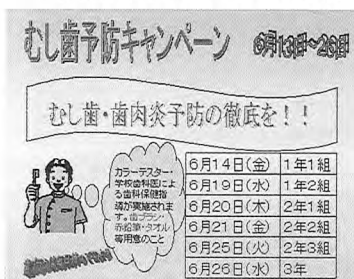 むし歯予防キャンペーン
6月13日~26日
むし歯・歯肉炎予防の徹底を!!
カラーテスター・
学校歯科医によ
る歯科保健指
導が実施されま
す。歯ブラシ・
赤鉛筆・タオル
等用意のこと
6月14日(金) 1年1組
6月19日(水) 1年2組
6月20日(木) 2年1組
6月21日(金) 2年2組
6月25日(火) 2年3組
6月26日(水) 3年